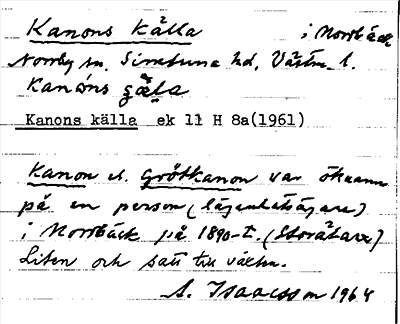 Kanons källa i Norrbäck
Norrby sn. Simtuna hd, Västm. l.
Kanons
Kanons källa ek 11 H 8a(1961)
Kanon el. Grötkanon var öknamn
på en person (lägenhetsägare)
i Norrbäck på 1890-t. (Storätare)
Liten och satt till växten.
A. Isaacsson 1964